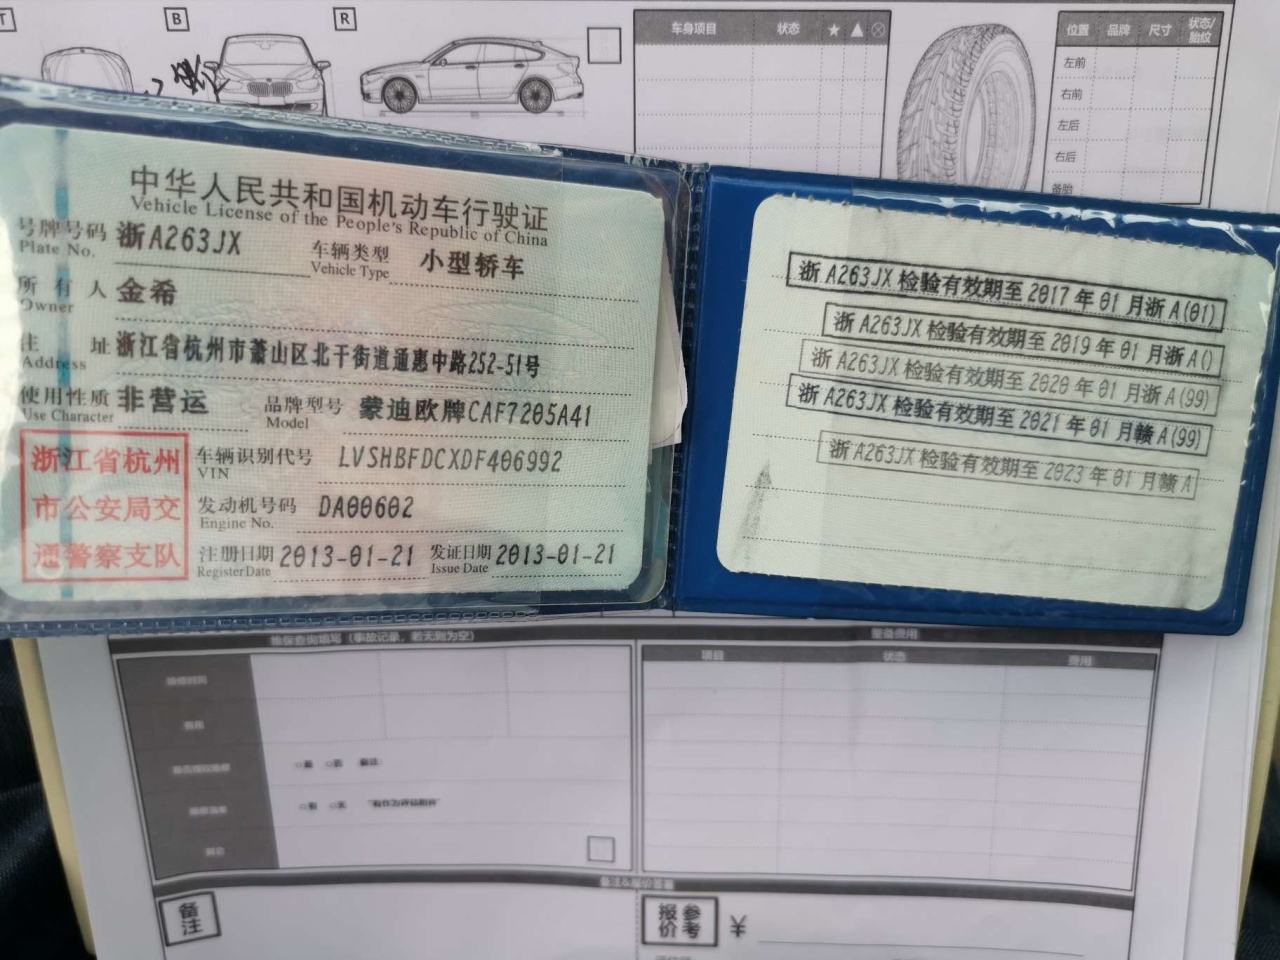 T
B
R
车身项目 状态 ★ ▲ ⊗
位置 品牌 尺寸 状态/胎纹
左前
右前
左后
右后
备胎
中华人民共和国机动车行驶证
Vehicle License of the People's Republic of China
号牌号码 浙A263JX 车辆类型 小型轿车
Plate No. Vehicle Type
所有人 金希
Owner
住址 浙江省杭州市萧山区北干街道通惠中路252-51号
Address
使用性质 非营运 品牌型号 蒙迪欧牌CAF7205A41
Use Character Model
浙江省杭州
市公安局交
通警察支队
车辆识别代号 LVSHBFDCXDF406992
VIN
发动机号码 DA00602
Engine No.
注册日期 2013-01-21 发证日期 2013-01-21
Register Date Issue Date
浙A263JX检验有效期至2017年01月浙A(01)
浙A263JX检验有效期至2019年01月浙A()
浙A263JX检验有效期至2020年01月浙A(99)
浙A263JX检验有效期至2021年01月赣A(99)
浙A263JX检验有效期至2023年01月赣A
维保查询填写（事故记录，若无则为空）
整备费用
项目 状态 费用
备注
参考报价 ¥